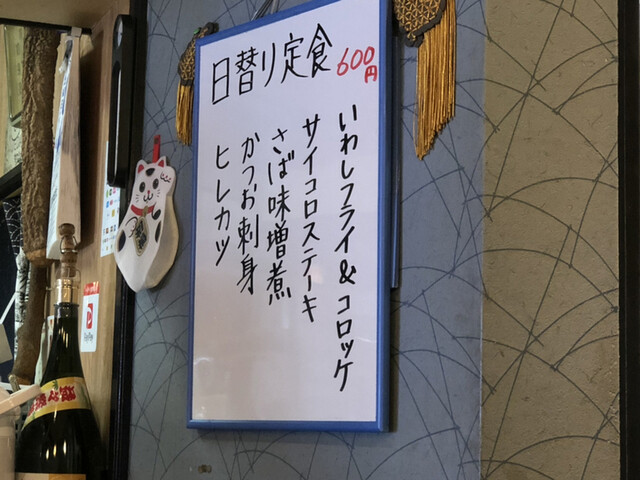 日替り定食 600円
いわしフライ&コロッケ
サイコロステーキ
さば味増煮
かつお刺身
ヒレカツ
PayPay